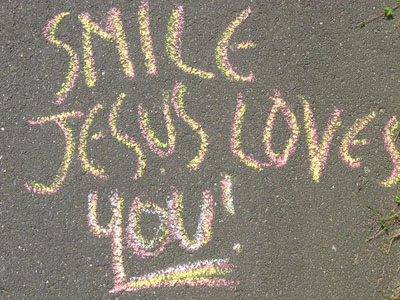 SMILE
JESUS LOVES
YOU!